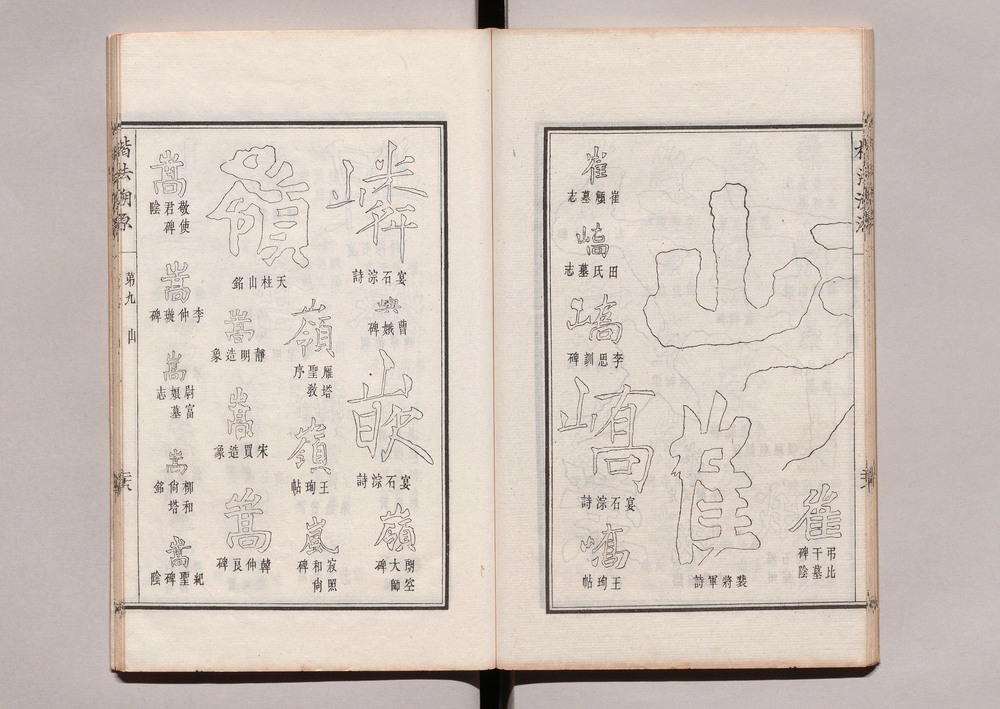 山
崔
弔比干墓碑陰
崔
裴將軍詩
崔
崔頠墓志
嶠
田氏墓志
嶠
李思訓碑
嶠
宴石淙詩
嶠
王珣帖
嶙
宴石淙詩
嶼
曹娥碑
宴石淙詩
嶺
朗空大師碑
嶺
雁塔聖教序
嶺
王珣帖
嵐
寂照和尙碑
嶺
天柱山銘
嵩
靜明造象
嵩
宋買造象
嵩
韓仲良碑
嵩
敬使君碑陰
嵩
李仲璇碑
嵩
尉富娘墓志
嵩
柳和尙塔銘
嵩
紀聖碑陰
楷法溯源
第九 山